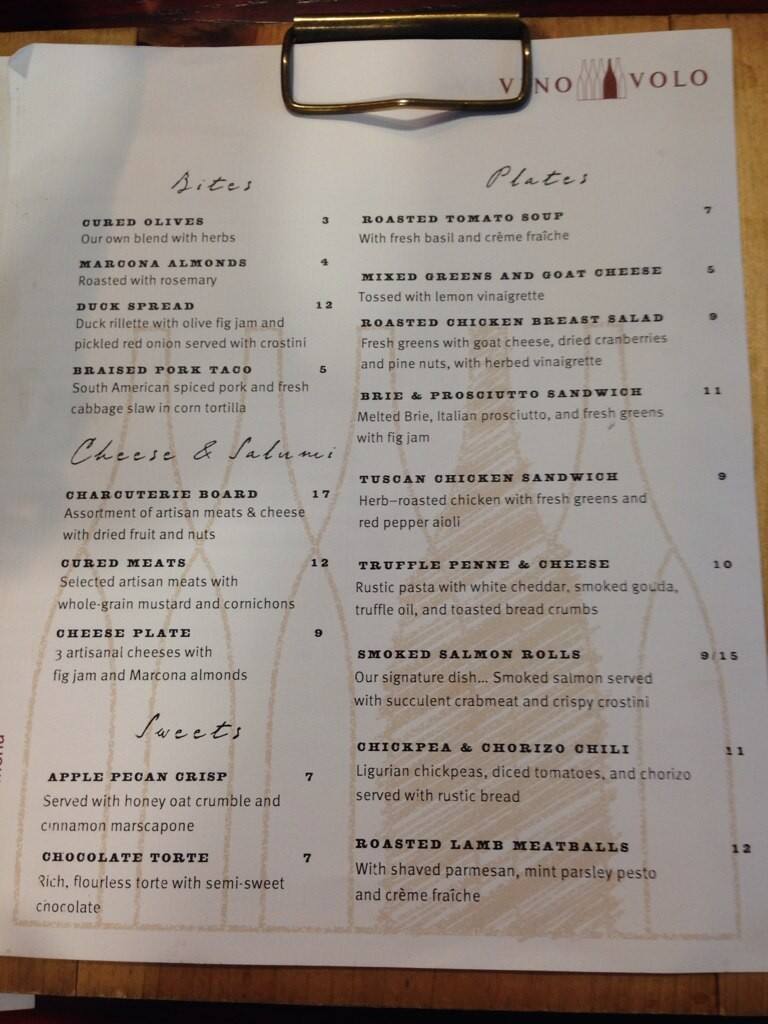 VINO VOLO
Bites
CURED OLIVES 3
Our own blend with herbs
MARCONA ALMONDS 4
Roasted with rosemary
DUCK SPREAD 12
Duck rillette with olive fig jam and
pickled red onion served with crostini
BRAISED PORK TACO 5
South American spiced pork and fresh
cabbage slaw in corn tortilla
Cheese & Salumi
CHARCUTERIE BOARD 17
Assortment of artisan meats & cheese
with dried fruit and nuts
CURED MEATS 12
Selected artisan meats with
whole-grain mustard and cornichons
CHEESE PLATE 9
3 artisanal cheeses with
fig jam and Marcona almonds
Sweets
APPLE PECAN CRISP 7
Served with honey oat crumble and
cinnamon marscapone
CHOCOLATE TORTE 7
Rich, flourless torte with semi-sweet
chocolate
Plates
ROASTED TOMATO SOUP 7
With fresh basil and crème fraîche
MIXED GREENS AND GOAT CHEESE 5
Tossed with lemon vinaigrette
ROASTED CHICKEN BREAST SALAD 9
Fresh greens with goat cheese, dried cranberries
and pine nuts, with herbed vinaigrette
BRIE & PROSCIUTTO SANDWICH 11
Melted Brie, Italian prosciutto, and fresh greens
with fig jam
TUSCAN CHICKEN SANDWICH 9
Herb-roasted chicken with fresh greens and
red pepper aioli
TRUFFLE PENNE & CHEESE 10
Rustic pasta with white cheddar, smoked gouda,
truffle oil, and toasted bread crumbs
SMOKED SALMON ROLLS 9/15
Our signature dish... Smoked salmon served
with succulent crabmeat and crispy crostini
CHICKPEA & CHORIZO CHILI 11
Ligurian chickpeas, diced tomatoes, and chorizo
served with rustic bread
ROASTED LAMB MEATBALLS 12
With shaved parmesan, mint parsley pesto
and crème fraîche